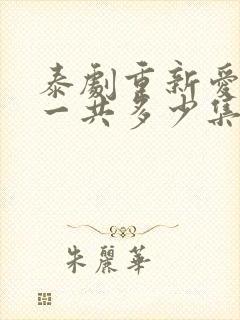 泰劇重新愛
一共多少集
朱麗華